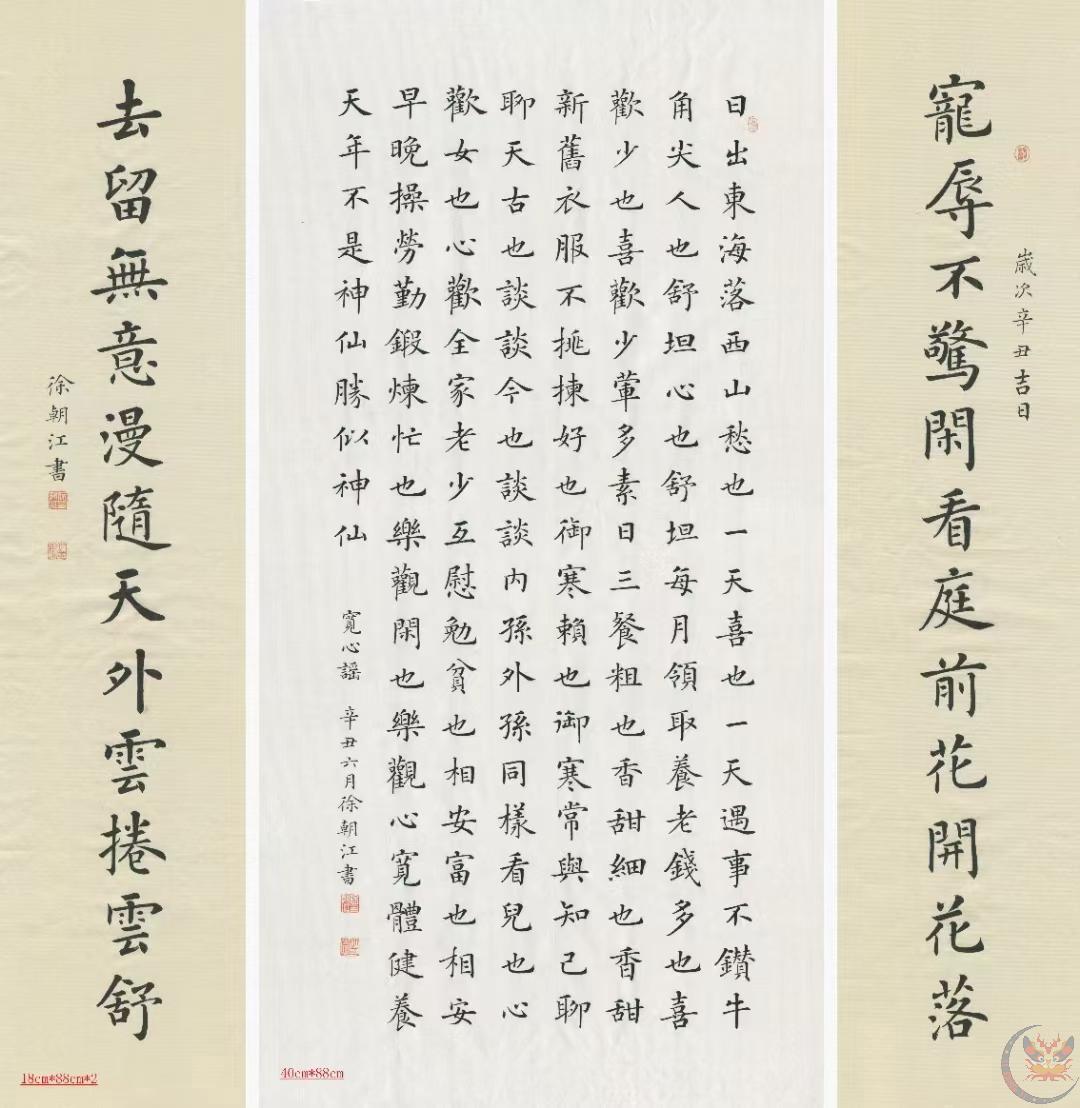 寵辱不驚閑看庭前花開花落
歲次辛丑吉日
日出東海落西山愁也一天喜也一天遇事不鑽牛
角尖人也舒坦心也舒坦每月領取養老錢多也喜
歡少也喜歡少葷多素日三餐粗也香甜細也香甜
新舊衣服不挑揀好也御寒賴也御寒常與知己聊
聊天古也談談今也談談內孫外孫同樣看兒也心
歡女也心歡全家老少互慰勉貧也相安富也相安
早晚操勞勤鍛煉忙也樂觀閑也樂觀心寬體健養
天年不是神仙勝似神仙
寬心謠 辛丑六月徐朝江書
去留無意漫隨天外雲捲雲舒
徐朝江書
18cm*88cm*2
40cm*88cm